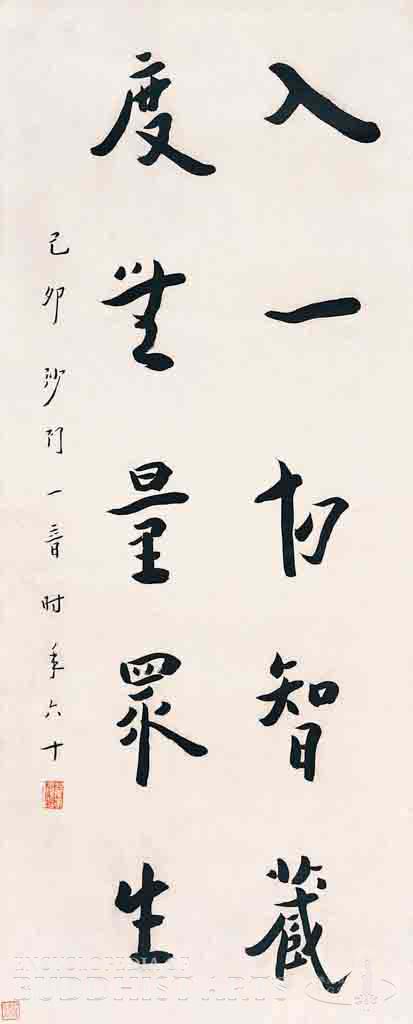 入一切智藏
度無量眾生
己卯沙門一音時年六十
ENCYCLOPEDIA OF
BUDDHIST ARTS